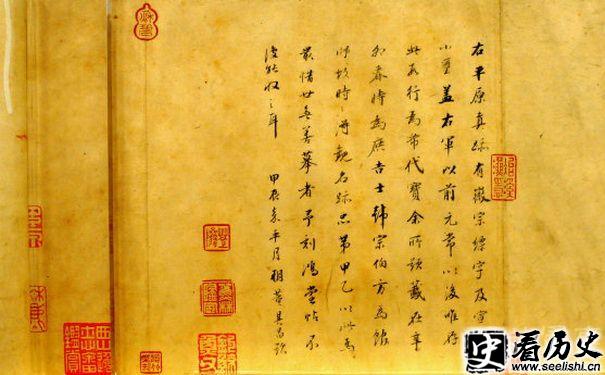 右平原真跡有徽宗標字及宣
小璽蓋右軍以前元常以後唯存
此數行為希代寶余所題籤在辛
卯春時為庶吉士韓宗伯方為館
師故時〻得觀名跡品第甲乙以此為
最惜世無善摹者予刻鴻堂帖不
復能收之耳 甲辰嘉平月朔董其昌跋
看历史
www.seelishi.cn